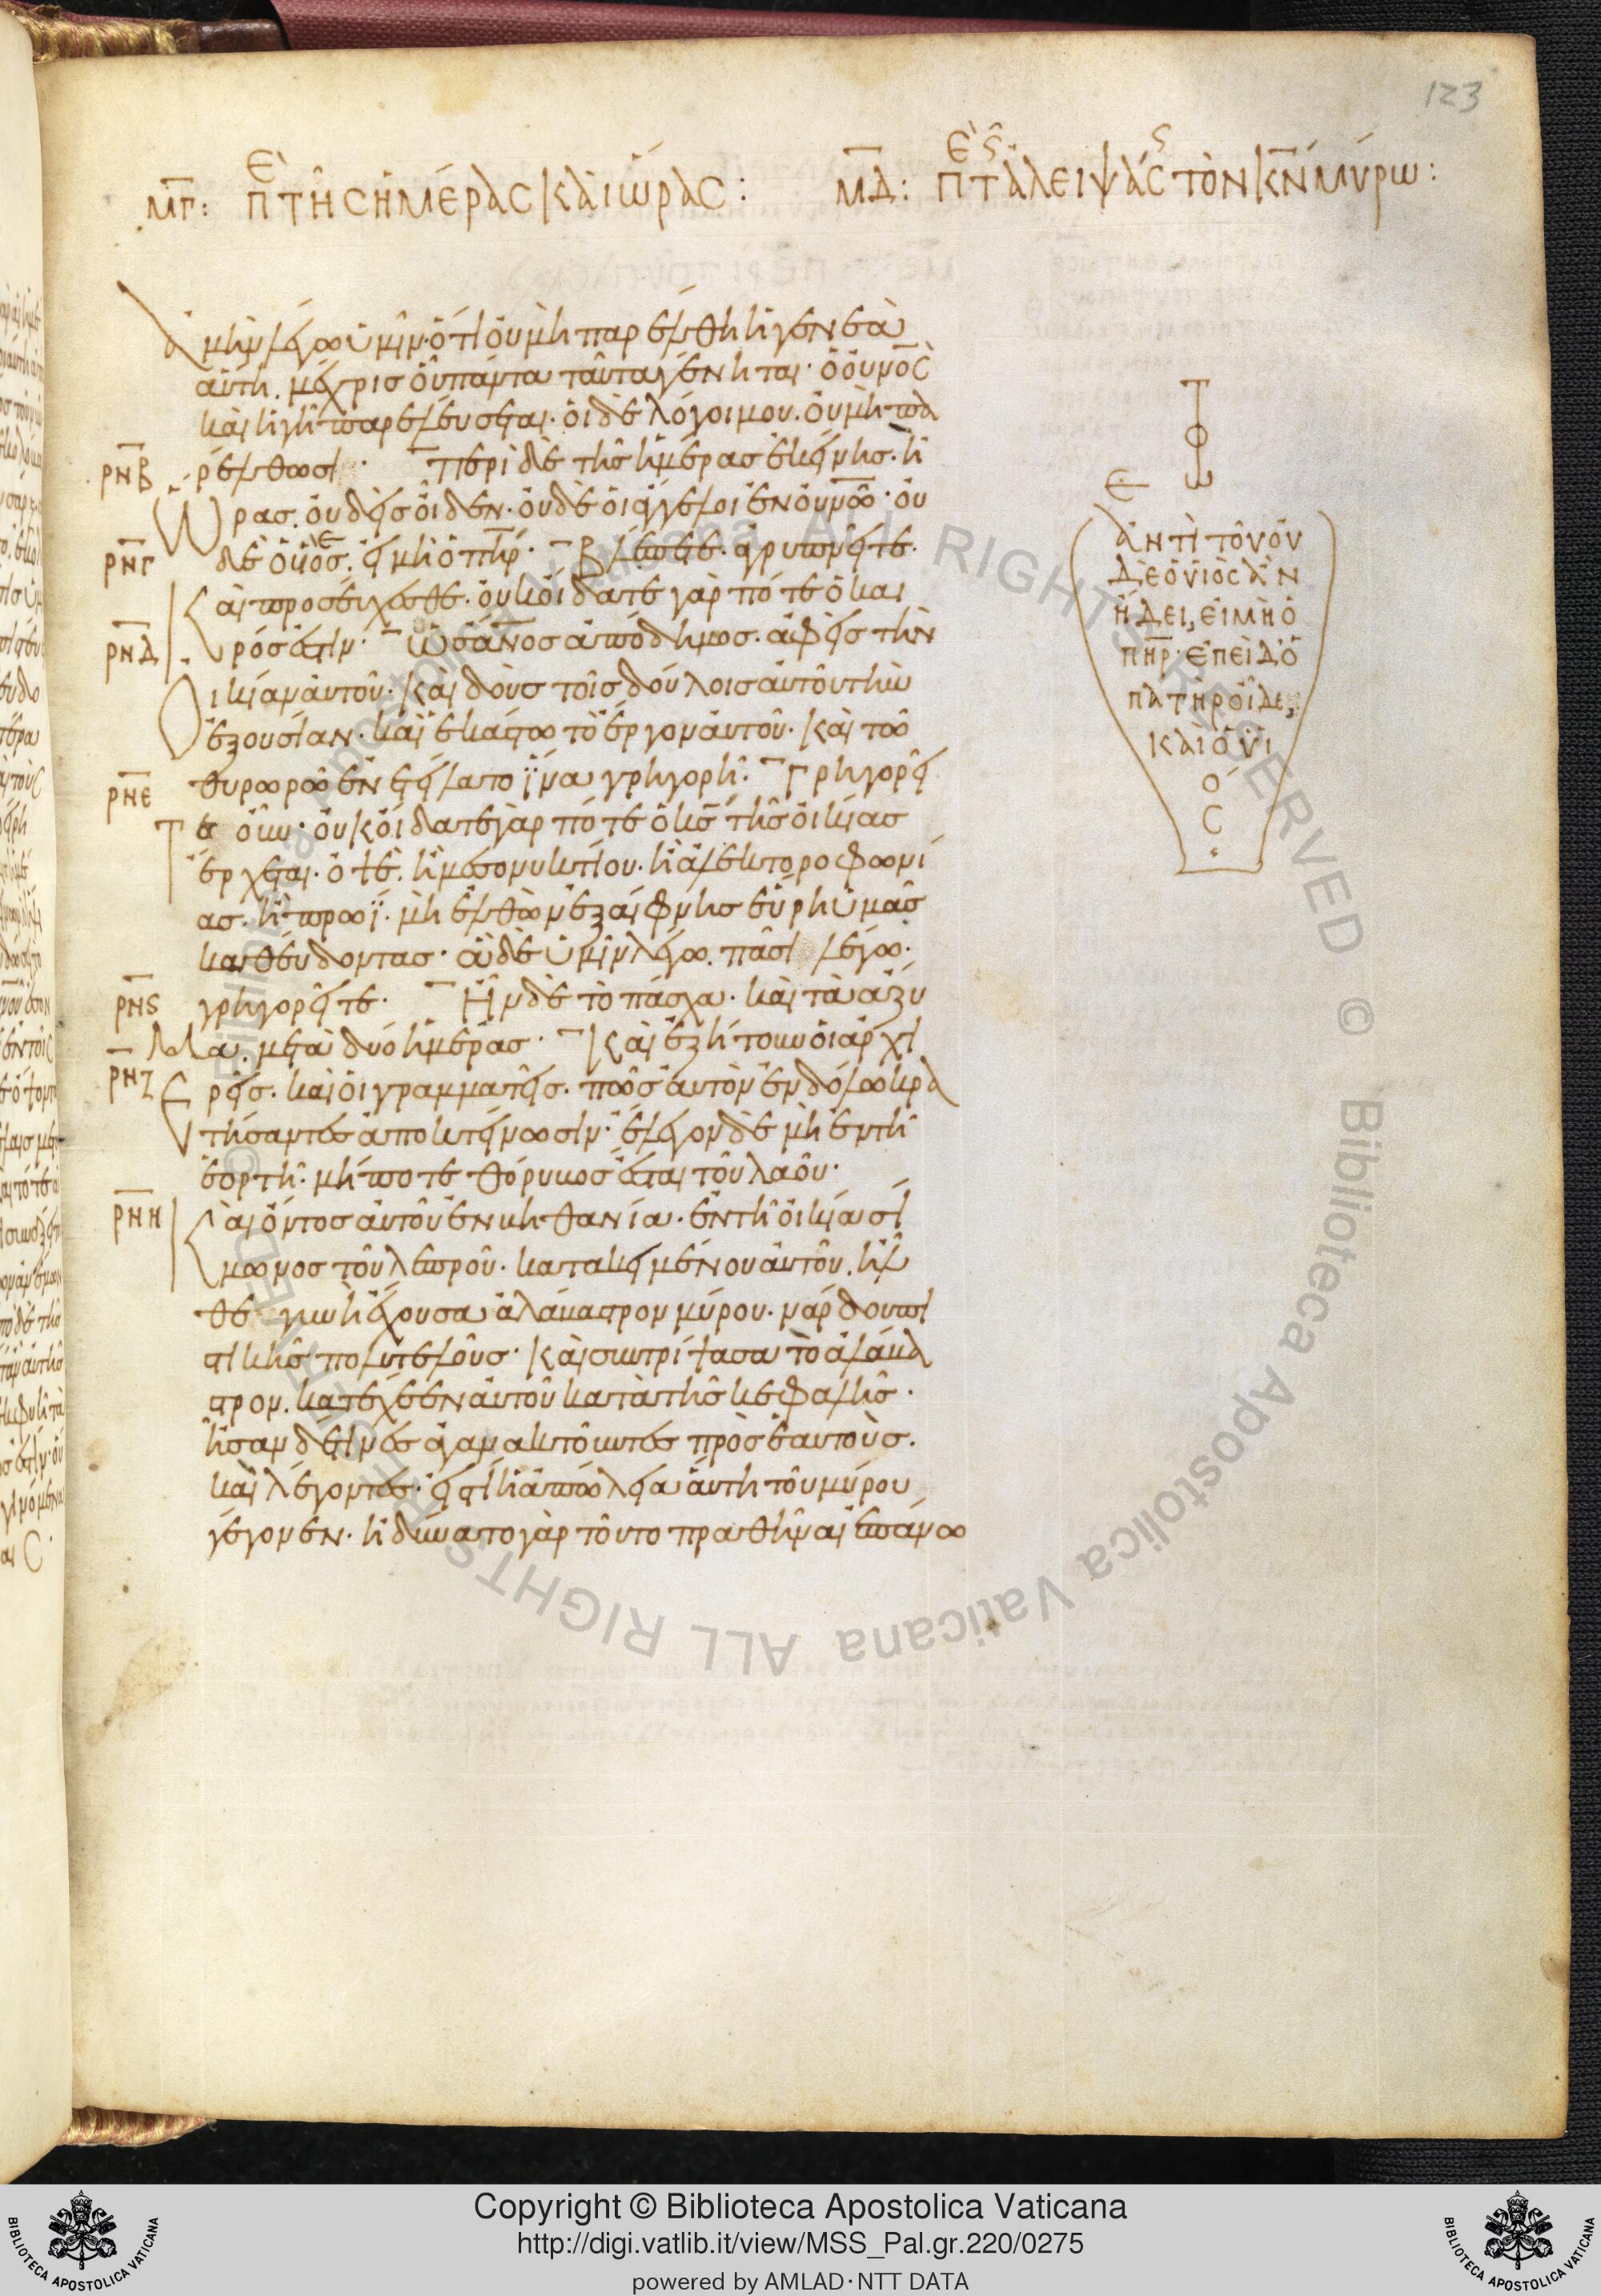 123
μγ: πε τῆς ἡμέρας καὶ ὥρας:
μδ: πε τ ἀλειψάς τὸν κν μύρω:
ἀμὴν λέγω ὑμῖν· ὅτι οὐ μὴ παρέλθη ἡ γενεὰ
αὕτη. μέχρισ οὗ πάντα ταῦτα γένηται· ὁ ουνος
καὶ ἡ γῆ παρελεύσεται· οἱ δὲ λόγοι μου. οὐ μὴ πα
ρνβ ρέλθωσι· Περὶ δὲ τῆς ἡμέρας ἐκείνης. ἢ
ὥρας. οὐδεὶς οἶδεν· οὐδὲ οἱ ἄγγελοι ἐν ουνω· οὐ
ρνγ δὲ ὁ υἱός. εἰ μὴ ὁ πηρ· Βλέπετε. ἀγρυπνεῖτε.
καὶ προσεύχεσθε. οὐκ οἴδατε γὰρ πότε ὁ και
ρνδ ρός ἐστιν· Ὡς ανος ἀπόδημος. ἀφεὶς τὴν
οἰκίαν αὐτοῦ· καὶ δοὺς τοῖς δούλοις αὐτοῦ τὴν
ἐξουσίαν. καὶ ἑκάστω τὸ ἔργον αὐτοῦ· καὶ τῶ
ρνε θυρωρῶ ἐνετείλατο ἵνα γρηγορῆ· Γρηγορεῖ
τε οὖν· οὐκ οἴδατε γὰρ πότε ὁ κς τῆς οἰκίας
ἔρχεται. ὀψὲ. ἢ μεσονυκτίου. ἢ ἀλεκτοροφωνί
ας. ἢ πρωΐ. μὴ ἐλθὼν ἐξαίφνης εὕρη ὑμᾶς
καθεύδοντας· ἃ δὲ ὑμῖν λέγω. πᾶσι λέγω.
ρνς γρηγορεῖτε. Ἦν δὲ τὸ πάσχα. καὶ τὰ ἄζυ
μα. μετὰ δύο ἡμέρας· Καὶ ἐζήτουν οἱ ἀρχι
ρνζ ερεῖς. καὶ οἱ γραμματεῖς. πῶς αὐτὸν ἐν δόλω κρα
τήσαντες ἀποκτείνωσιν· ἔλεγον δὲ μὴ ἐν τῆ
ἑορτῆ· μήποτε θόρυβος ἔσται τοῦ λαοῦ·
ρνη Καὶ ὄντος αὐτοῦ ἐν βηθανία. ἐν τῆ οἰκία σί
μωνος τοῦ λεπροῦ. κατακειμένου αὐτοῦ. ἦλ
θε γυνὴ ἔχουσα ἀλάβαστρον μύρου. νάρδου πι
στικῆς πολυτελοῦς· καὶ συντρίψασα τὸ ἀλάβα
στρον. κατέχεεν αὐτοῦ κατὰ τῆς κεφαλῆς·
ἦσαν δέ τινες ἀγανακτοῦντες πρὸς ἑαυτοὺς.
καὶ λέγοντες· εἰς τί ἡ ἀπώλεια αὕτη τοῦ μύρου
γέγονεν· ἠδύνατο γὰρ τοῦτο πραθῆναι ἐπάνω
ἀντὶ τοῦ οὐ
δὲ ὁ υἱὸς ἂν
ἤδει, εἰ μὴ ὁ
πηρ· ἐπεὶ δ ὁ
πατὴρ οἶδε,
καὶ ὁ υἱ
ό
ς
Copyright © Biblioteca Apostolica Vaticana
http://digi.vatlib.it/view/MSS_Pal.gr.220/0275
powered by AMLAD·NTT DATA
BIBLIOTECA APOSTOLICA VATICANA
BIBLIOTECA APOSTOLICA VATICANA
© Biblioteca Apostolica Vaticana ALL RIGHTS RESERVED
© Biblioteca Apostolica Vaticana ALL RIGHTS RESERVED